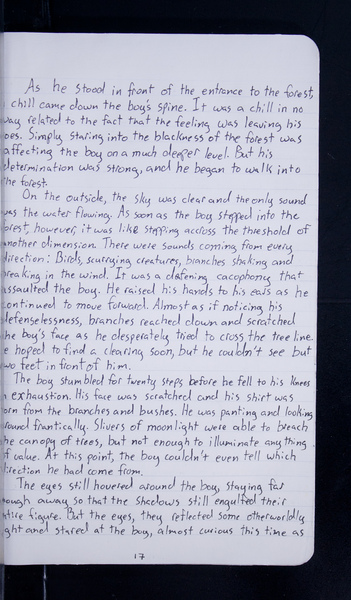 As he stood in front of the entrance to the forest,
chill came down the boy's spine. It was a chill in no
way related to the fact that the feeling was leaving his
oes. Simply staring into the blackness of the forest was
affecting the boy on a much deeper level. But his
determination was strong, and he began to walk into
the forest.
On the outside, the sky was clear and the only sound
was the water flowing. As soon as the boy stepped into the
forest, however, it was like stepping accross the threshold of
another dimension. There were sounds coming from every
direction: Birds, scurrying creatures, branches shaking and
reaking in the wind. It was a defening cacophony that
assaulted the boy. He raised his hands to his ears as he
continued to move forward. Almost as if noticing his
defenselessness, branches reached down and scratched
he boy's face as he desperately tried to cross the tree line.
e hoped to find a clearing soon, but he couldn't see but
wo feet in front of him.
The boy stumbled for twenty steps before he fell to his knees
n exhaustion. His face was scratched and his shirt was
orn from the branches and bushes. He was panting and looking
around frantically. Slivers of moonlight were able to breach
he canopy of trees, but not enough to illuminate anything
of value. At this point, the boy couldn't even tell which
direction he had come from.
The eyes still hovered around the boy, staying far
nough away so that the shadows still engulfed their
ntire figure. But the eyes, they reflected some otherworldly
ght and stared at the boy, almost curious this time as
17